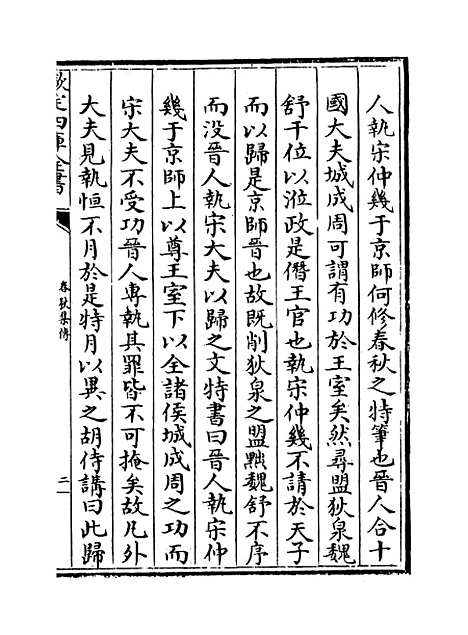 人執宋仲幾于京師何修春秋之特筆也晉人合十
國大夫城成周可謂有功於王室矣然尋盟狄泉魏
舒干位以涖政是僭王官也執宋仲幾不請於天子
而以歸是京師晉也故既削狄泉之盟黜魏舒不序
而没晉人執宋大夫以歸之文特書曰晉人執宋仲
幾于京師上以尊王室下以全諸侯城成周之功而
宋大夫不受功晉人專執其罪皆不可掩矣故凡外
大夫見執恒不月於是特月以異之胡侍講曰此歸
欽定四庫全書
春秋集傳
二